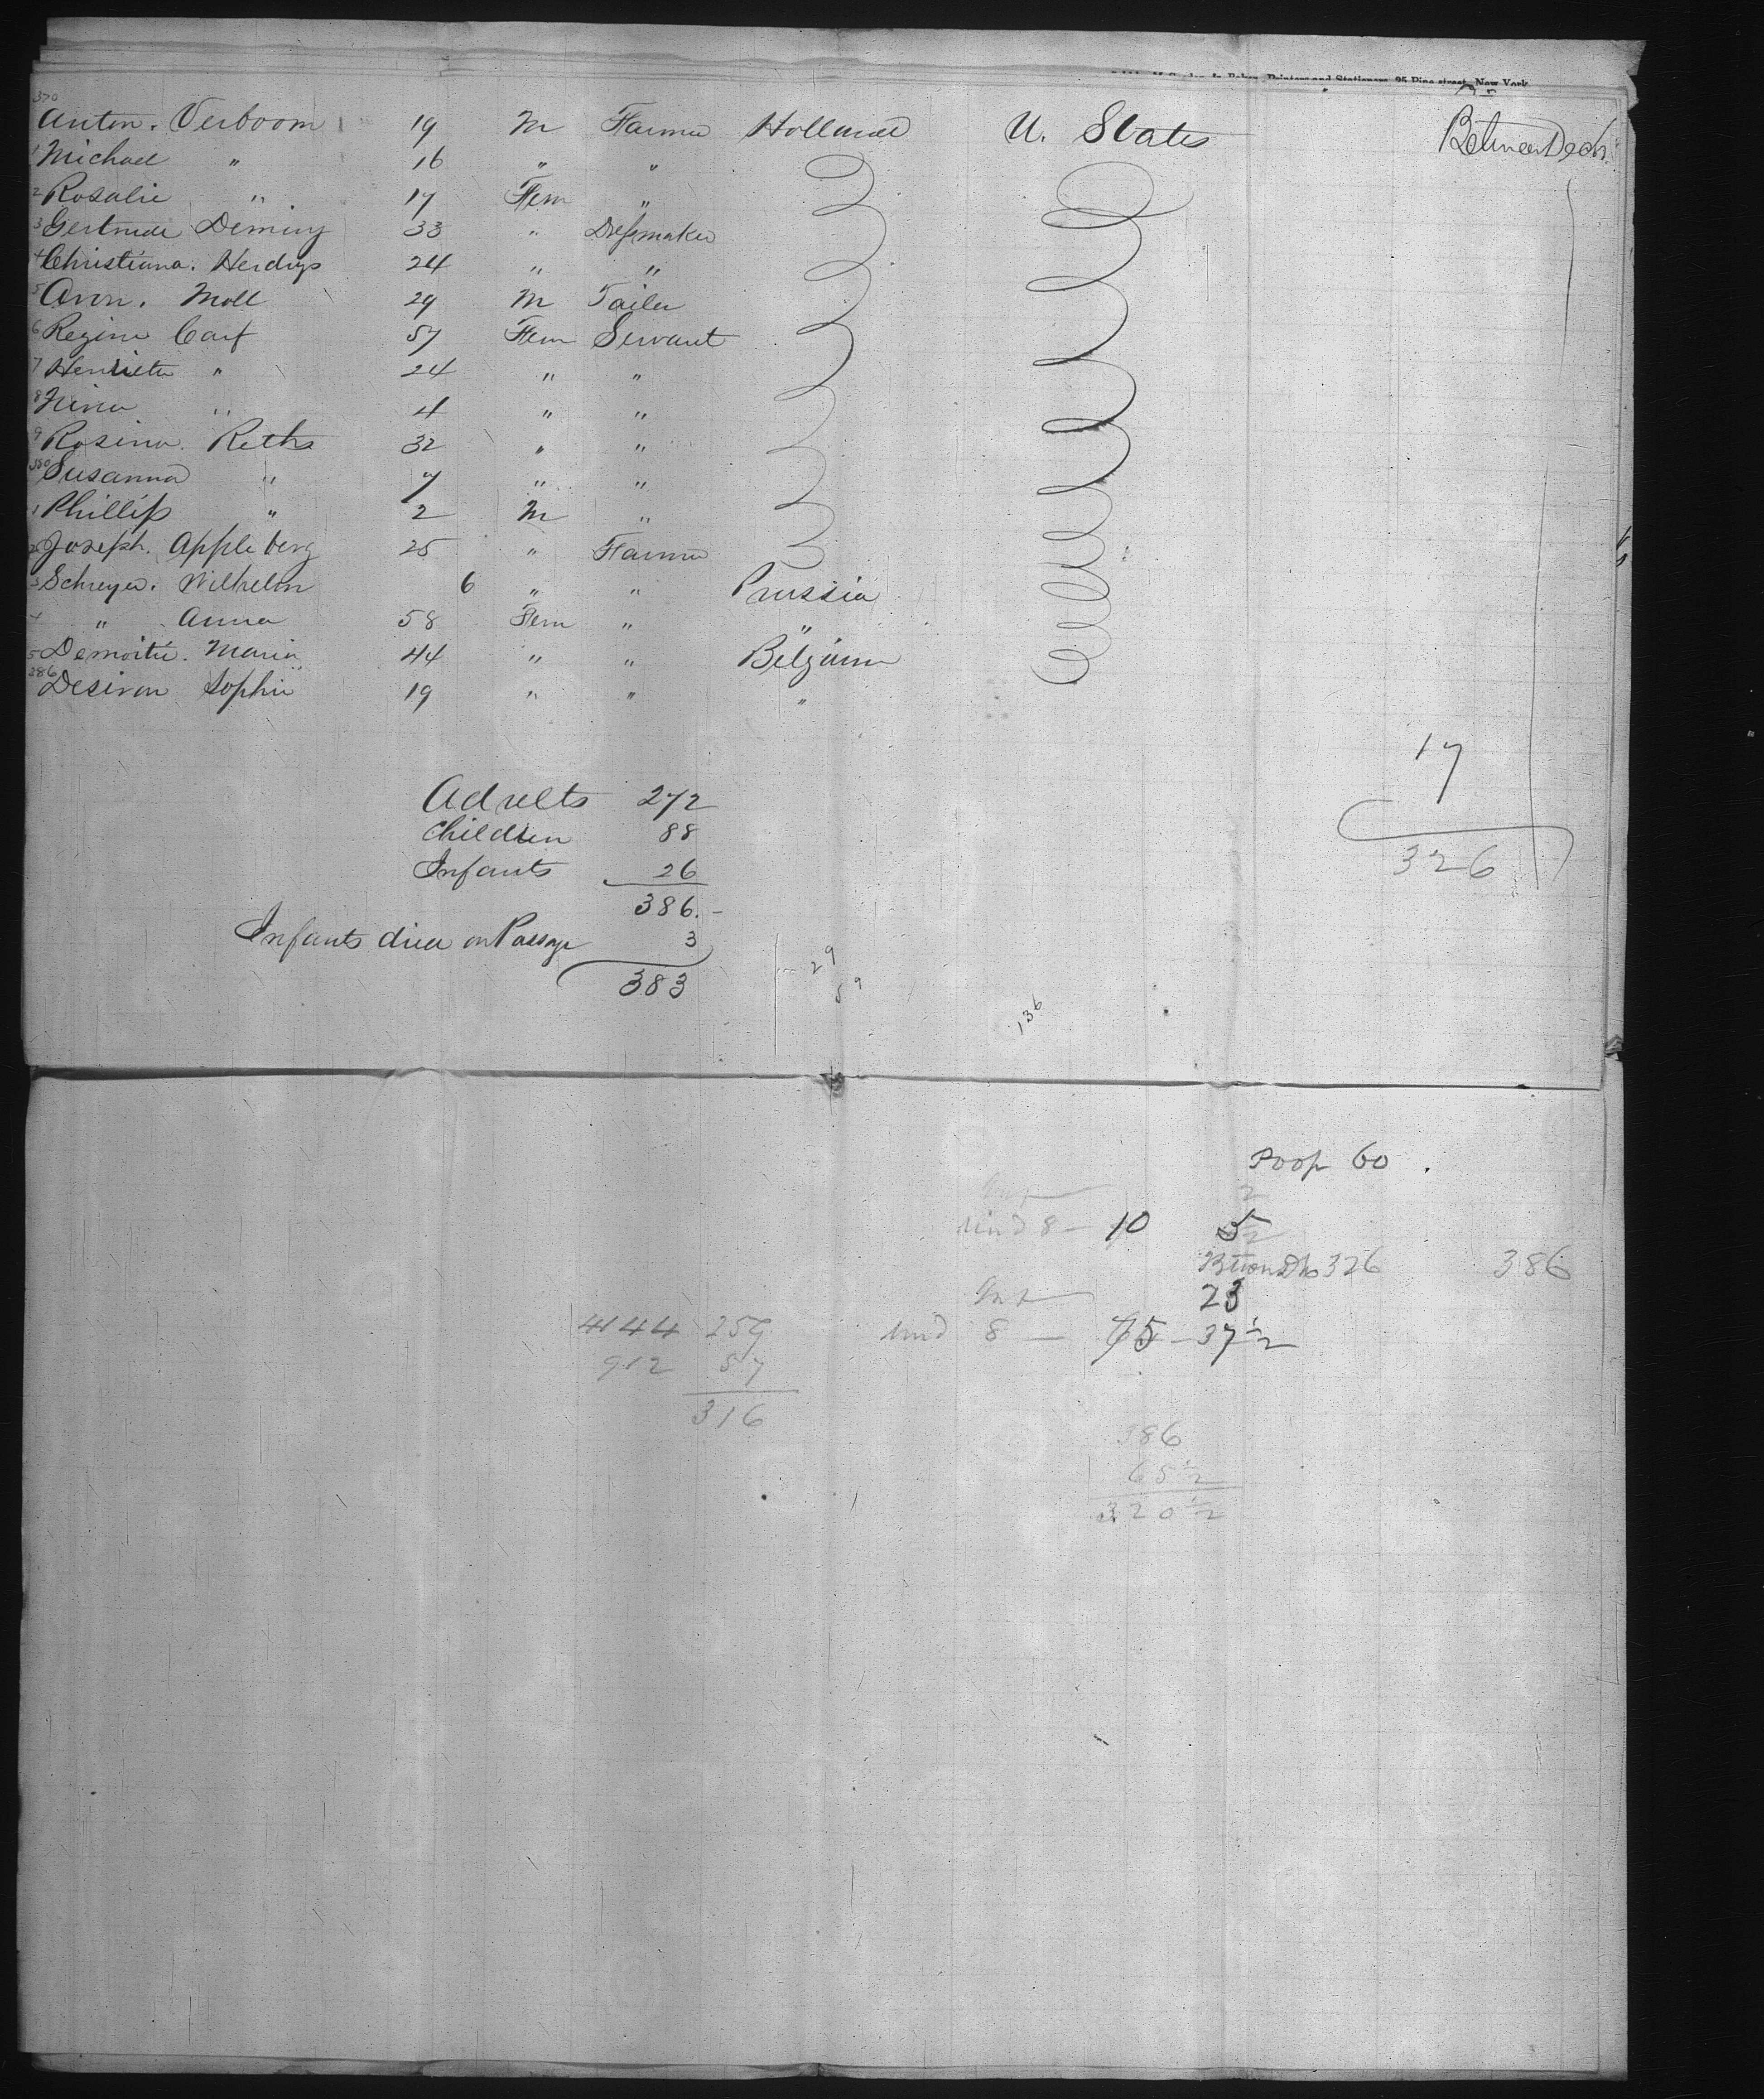 Printers and Stationers, 95 Pine street, New York
370 Anton. Verboom 19 M Farmer Holland U. States Between Deck
1 Michael " 16 " "
2 Rosalie " 17 Fem "
3 Gertrude Deming 33 " Dressmaker
4 Christiana. Herdrys 24 " "
5 Aron. Moll 29 M Tailer
6 Regina Carf 57 Fem Servant
7 Henrieta " 24 " "
8 Nina " 4 " "
9 Rosina. Reths 32 " "
380 Susanna " 7 " "
1 Phillip " 2 M "
2 Joseph. Appleberg 25 " Farmer
3 Schreyer. Wilhelm 6 " " Prussia
4 " Anna 58 Fem " "
5 Demoitie. Maria 44 " " Belgium
386 Desiron Sophie 19 " " "
17
Adults 272
Children 88
Infants 26
326
386.-
Infants died on Passage 3
383
29
59
136
Poop 60.
2
Und 8 - 10 5
326 386
Inf 23
4144 259
Und 8 - 75 - 37 1/2
912 57
316
386
65 1/2
320 1/2